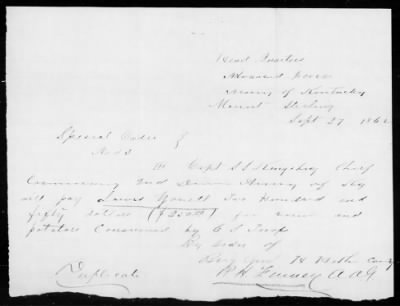 Head Quarters
Advanced Forces
Army of Kentucky
Mount Sterling
Sept 27 1862
Special Order
No 3
Capt S S Chief
Commissary 2nd Division Army of Ky
will pay Lewis Two Hundred and
fifty dollars ($250.00) for corn and
potatoes Consumed by C S Troops
By order of
Brig Genl Comdg
A A G
Duplicate